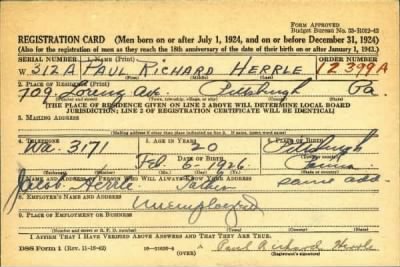 FORM APPROVED
Budget Bureau No. 33-R012-42
REGISTRATION CARD—(Men born on or after July 1, 1924, and on or before December 31, 1924)
(Also for the registration of men as they reach the 18th anniversary of the date of their birth on or after January 1, 1943.)
SERIAL NUMBER 1. NAME (Print) ORDER NUMBER
W 312A PAUL RICHARD HERRLE 12399A
(First) (Middle) (Last)
2. PLACE OF RESIDENCE (Print)
709 Lorenz Ave. Pittsburgh Pa.
(Number and street) (Town, township, village, or city) (County) (State)
[THE PLACE OF RESIDENCE GIVEN ON LINE 2 ABOVE WILL DETERMINE LOCAL BOARD
JURISDICTION; LINE 2 OF REGISTRATION CERTIFICATE WILL BE IDENTICAL]
3. MAILING ADDRESS
[Mailing address if other than place indicated on line 2. If same, insert word same]
4. TELEPHONE 5. AGE IN YEARS 6. PLACE OF BIRTH
Wa. 3171 20 Pittsburgh
DATE OF BIRTH
Feb. 6 1926 Penna.
(Exchange) (Number) (Mo.) (Day) (Yr.) (State or country)
7. NAME AND ADDRESS OF PERSON WHO WILL ALWAYS KNOW YOUR ADDRESS
Jacob Herrle Father same add.
8. EMPLOYER'S NAME AND ADDRESS
Unemployed
9. PLACE OF EMPLOYMENT OR BUSINESS
(Number and street or R. F. D. number) (Town) (County) (State)
I AFFIRM THAT I HAVE VERIFIED ABOVE ANSWERS AND THAT THEY ARE TRUE.
DSS Form 1 (Rev. 11-16-42) (OVER) Paul Richard Herrle